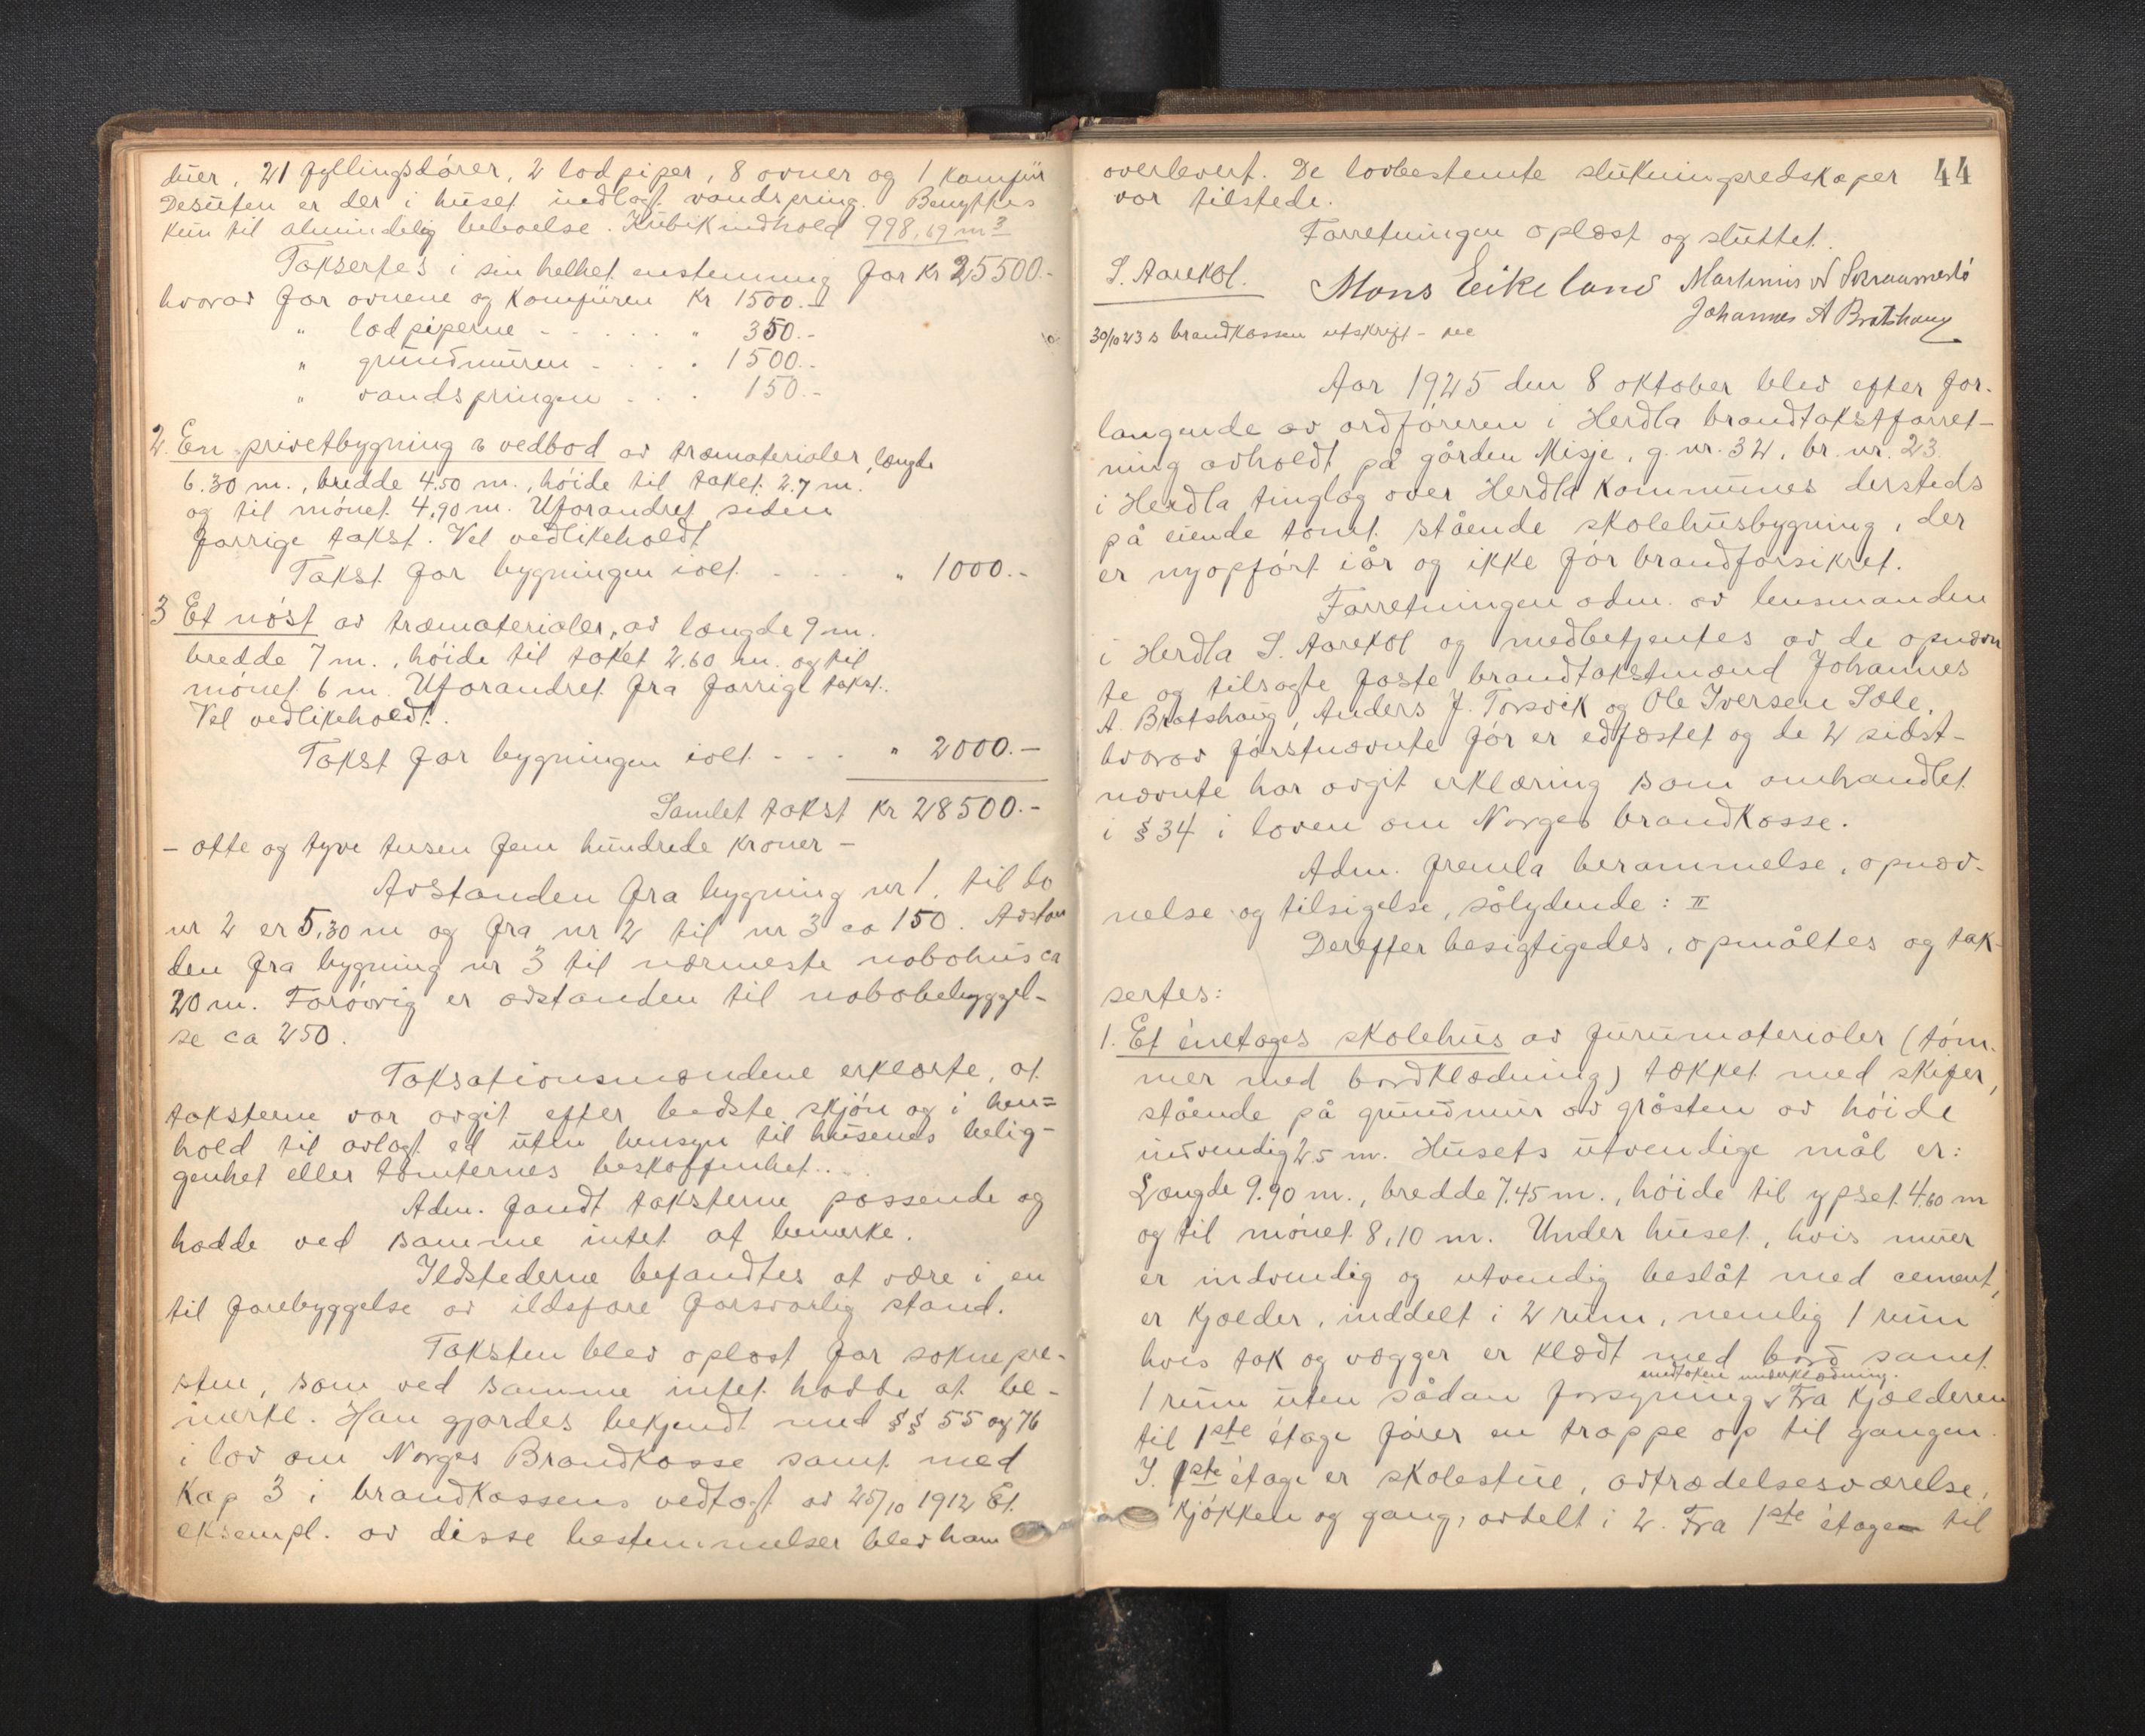 duer, 21 fyllingsdører, 2 lodpiper, 8 ovner og 1 komfür
Desuten er der i huset indlagt vandspring. Benyttes
kun til almindelig beboelse. Kubikindhold 998,69 m3
Taksertes i sin helhet enstemmig for Kr 25500.-
hvorav for ovnene og Komfüren Kr 1500.-
" lodpiperne - - - - - " 350.-
" grundmuren - . . . 1500.-
" vandspringen - . . 150.-
2. En privetbygning & vedbod av træmaterialer, længde
6.30 m., bredde 4.50 m., høide til taket 2.7 m.
og til mønet 4,90 m. Uforandret siden
forrige takst. Vel vedlikeholdt
Takst for bygningen ialt - - - " 1000.-
3 Et nøst av træmaterialer, av længde 9 m.
bredde 7 m., høide til taket 2.60 m. og til
mønet 6 m. Uforandret fra forrige takst.
Vel vedlikeholdt.
Takst for bygningen ialt - - - " 2000.-
Samlet takst Kr 28500.-
- otte og tyve tusen fem hundrede kroner -
Avstanden fra bygning nr 1. til do
nr 2 er 5,30 m og fra nr 2 til nr 3 ca 150. Avstan
den fra bygning nr 3 til nærmeste nabohus ca
20 m. Forøvrig er avstanden til nabobebyggel-
se ca 250.
Taksationsmændene erklærte, at
taksterne var avgit efter bedste skjøn og i hen=
hold til avlagt ed uten hensyn til husenes belig-
genhet eller tomternes beskaffenhet.
Adm. fandt taksterne passende og
hadde ved samme intet at bemerke.
Ildstederne befandtes at være i en
til forebyggelse av ildsfare forsvarlig stand.
Taksten blev oplæst for sokнepre-
sten, som ved samme intet hadde at be-
merke. Han gjordes bekjendt med §§ 55 og 76
i lov om Norges Brandkasse samt med
Kap 3 i brandkassens vedtægt av 25/10 1912 Et
eksempl. av disse bestemmelser blev ham
44
overlevert. De lovbestemte slukningsredskaper
var tilstede.
Forretningen oplæst og sluttet.
S. Aarekol. Mons Eikeland Martinius
Johannes A Bratshaug
30/10 23 s brandkassen utskrift -
Aar 1925 den 8 oktober blev efter for-
langende av ordføreren i Herdla brandtakstforret-
ning avholdt på gården Misje, g. nr. 32, br. nr. 23
i Herdla tinglag over Herdla Kommunes dersteds
på eiende tomt stående skolehusbygning, der
er nyopført iår og ikke før brandforsikret.
Forretningen adm. av lensmanden
i Herdla S. Aarekol og medbetjentes av de opnævn
te og tilsagte faste brandtakstmænd Johannes
A. Bratshaug, Anders J. Torsvik og Ole Iversen Sæle,
hvorav førstnævnte før er edfæstet og de 2 sidst-
nævnte har avgit erklæring som omhandlet
i § 34 i loven om Norges brandkasse.
Adm. fremla berammelse, opnæv-
nelse og tilsigelse, sålydende: II
Derefter besigtigedes, opmåltes og tak-
sertes:
1. Et énetages skolehus av furumaterialer (tøm-
mer med bordklædning) tækket med skifer,
stående på grundmur av gråsten av høide
indvendig 2.5 m. Husets utvendige mål er:
Længde 9.90 m., bredde 7.45 m., høide til ypset 4.60 m
og til mønet 8,10 m. Under huset, hvis murer
er indvendig og utvendig beslåt med cement,
er Kjælder, inddelt i 2 rum, nemlig 1 rum
hvis tak og vægger er klædt med bord samt
undtaken underklædning.
1 rum uten sådan forsyning v Fra Kjælderen
til 1ste étage fører en trappe op til gangen.
I. 1ste étage er skolestue, avtrædelsesværelse,
kjøkken og gang, avdelt i 2. Fra 1ste étage til